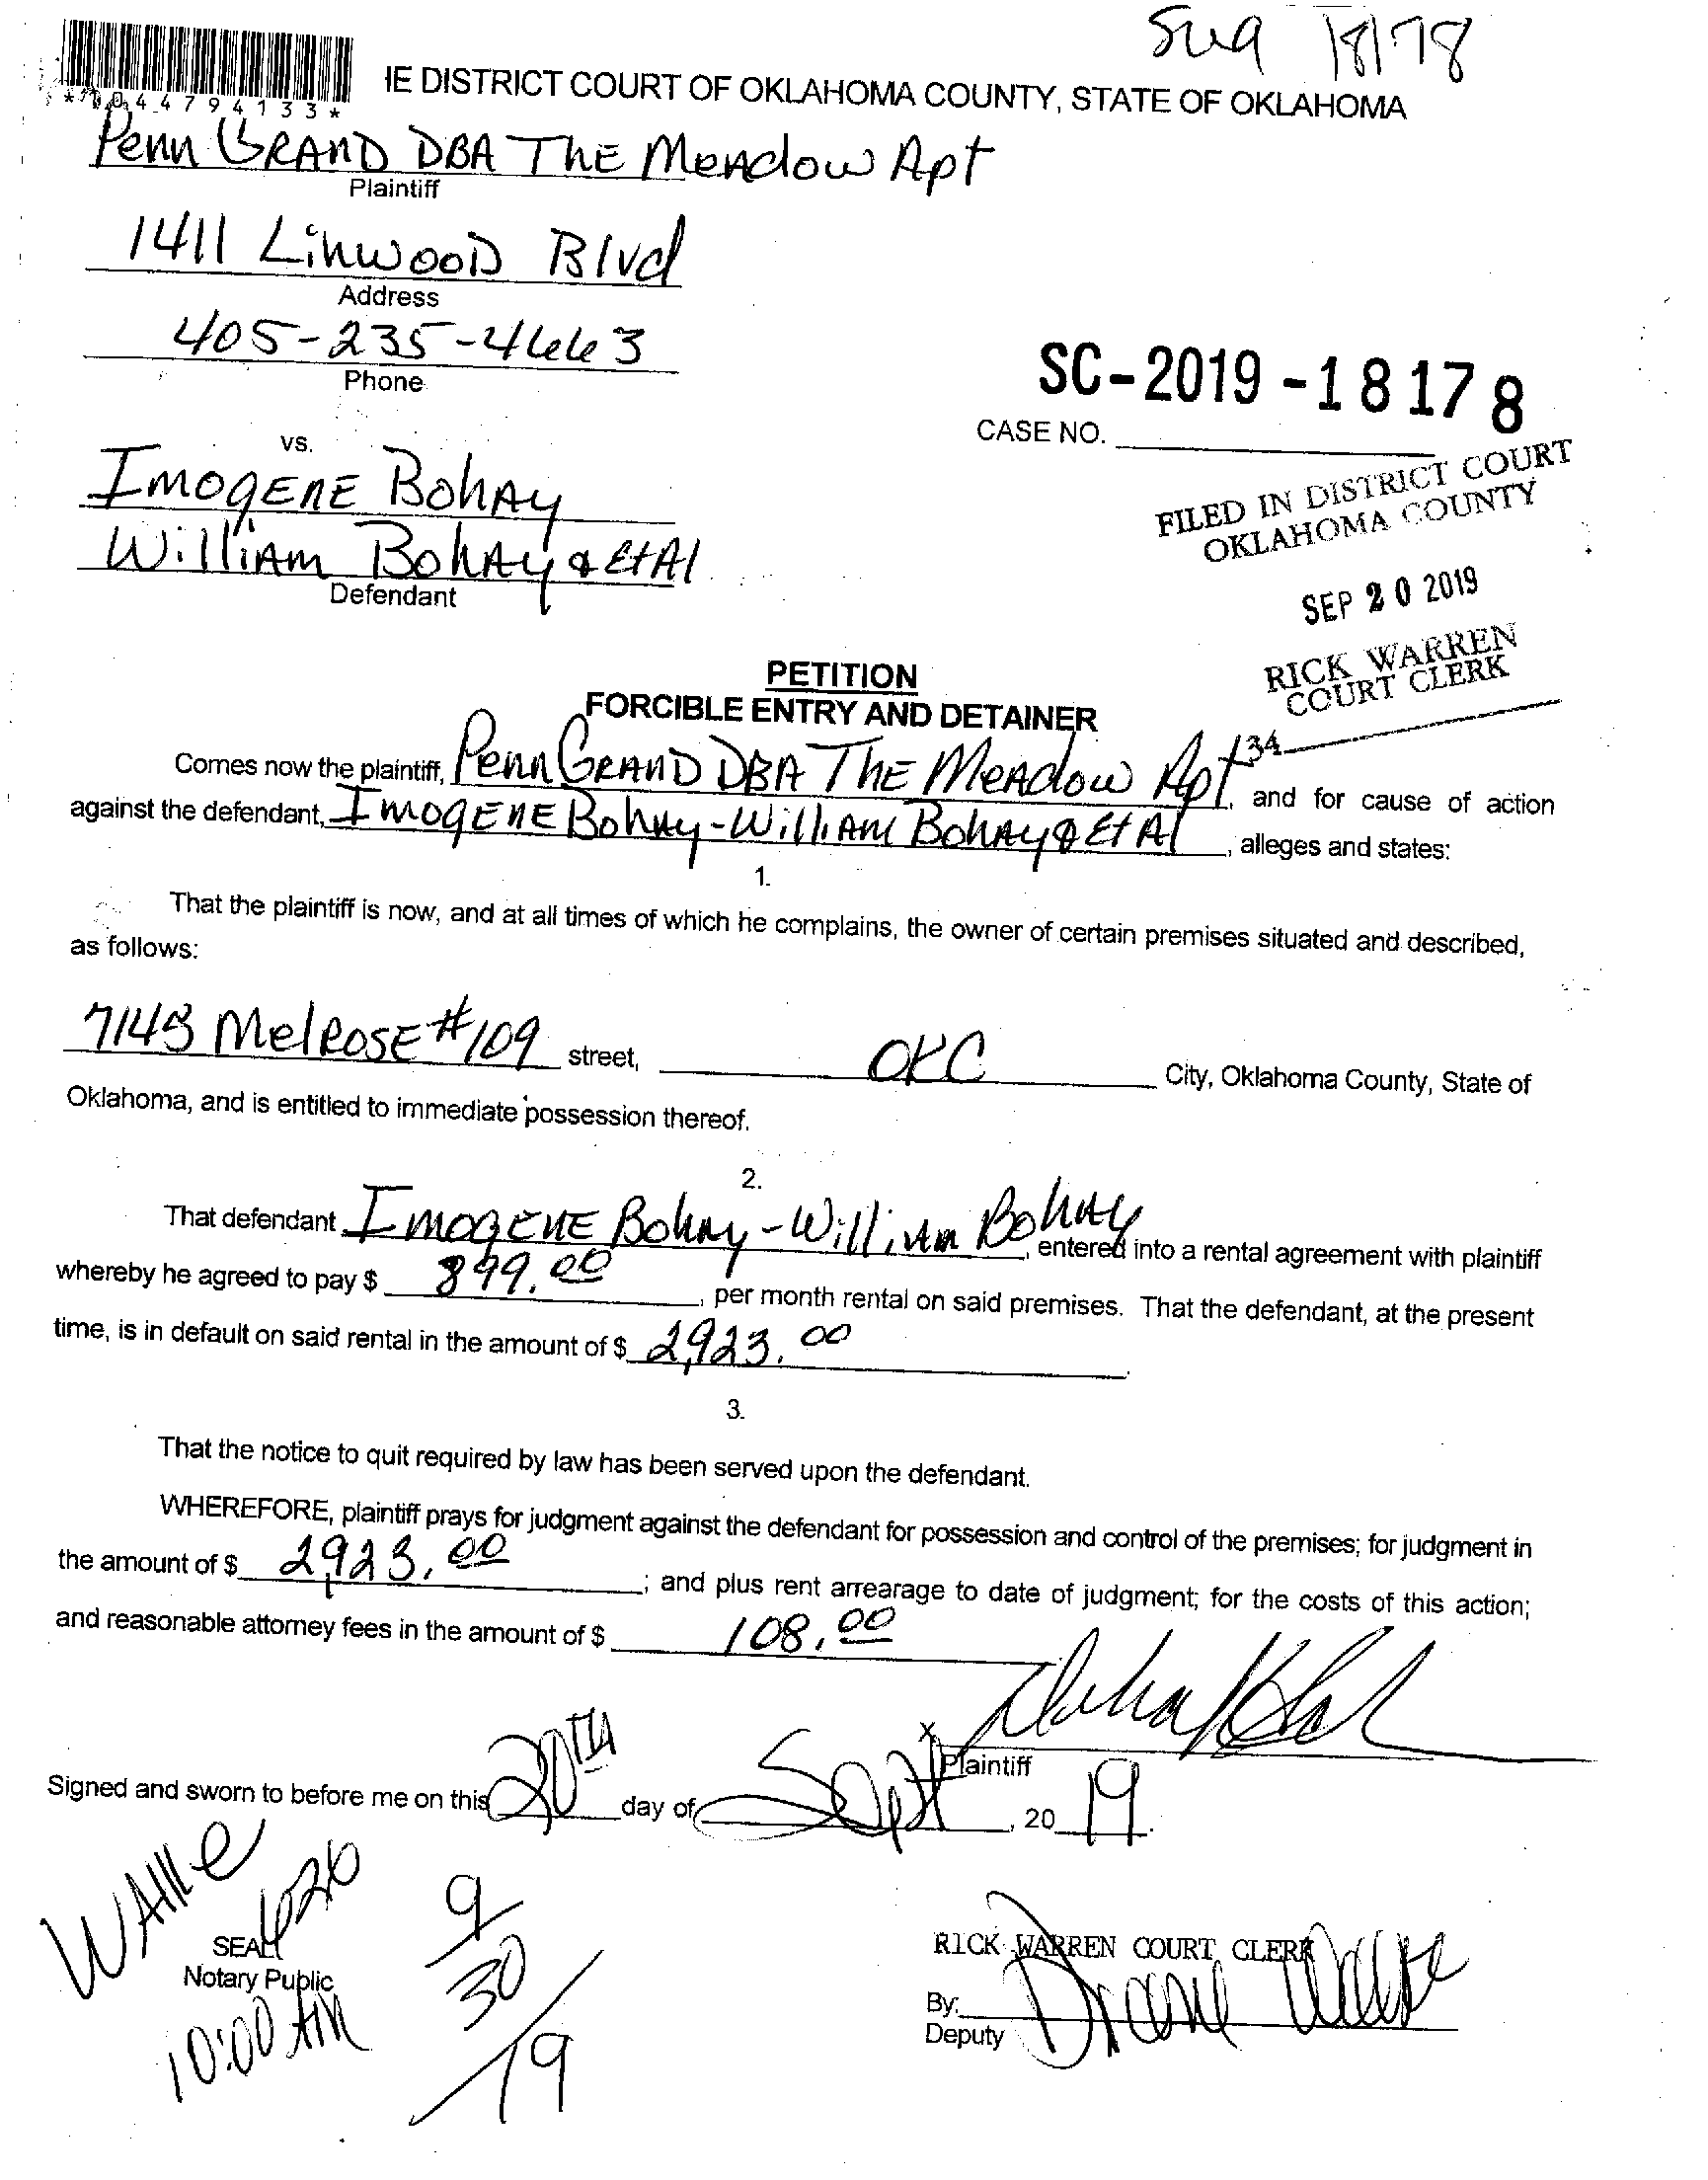 Sug 18178
*1044794133*
IE DISTRICT COURT OF OKLAHOMA COUNTY, STATE OF OKLAHOMA
Penn GRAND DBA The Meadow Apt
Plaintiff
1411 Linwood Blvd
Address
405-235-4663
Phone
SC-2019-18178
CASE NO.
vs.
Imogene Bohay
William Bohay & Et Al
Defendant
FILED IN DISTRICT COURT
OKLAHOMA COUNTY
SEP 20 2019
RICK WARREN
COURT CLERK
134
PETITION
FORCIBLE ENTRY AND DETAINER
Comes now the plaintiff, Penn GRAND DBA The Meadow Apt, and for cause of action
against the defendant, Imogene Bohay-William Bohay & Et Al, alleges and states:
1.
That the plaintiff is now, and at all times of which he complains, the owner of certain premises situated and described,
as follows:
7145 Melrose #109 street, OKC City, Oklahoma County, State of
Oklahoma, and is entitled to immediate possession thereof.
2.
That defendant Imogene Bohay-William Bohay, entered into a rental agreement with plaintiff
whereby he agreed to pay $ 899.00, per month rental on said premises. That the defendant, at the present
time, is in default on said rental in the amount of $ 2,923.00.
3.
That the notice to quit required by law has been served upon the defendant.
WHEREFORE, plaintiff prays for judgment against the defendant for possession and control of the premises; for judgment in
the amount of $ 2,923.00; and plus rent arrearage to date of judgment; for the costs of this action;
and reasonable attorney fees in the amount of $ 108.00
x
Plaintiff
Signed and sworn to before me on this 20TH day of Sept, 2019.
SEAL
Notary Public
10:00 AM
9/30/19
RICK WARREN COURT CLERK
By:
Deputy
Diane